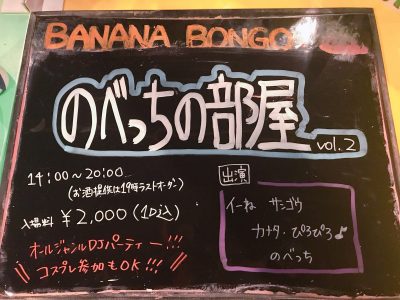 BANANA BONGO
のべっちの部屋
vol.2
14:00〜20:00
(お酒提供は19時ラストオーダー)
入場料 ¥2,000(1D込)
オールジャンルDJパーティー!!!
コスプレ参加もOK!!!
出演
イーね サンゴウ
カナタ・ぴろぴろ♪
のべっち